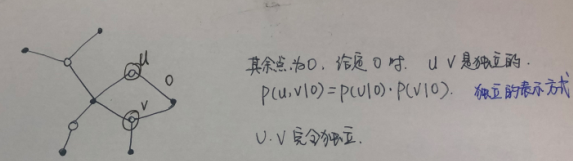 u
O
v
其余点为O. 给定O时. u v是独立的.
P(u,v|O)=P(u|O)·P(v|O). 独立的表示方式
u.v完全独立.